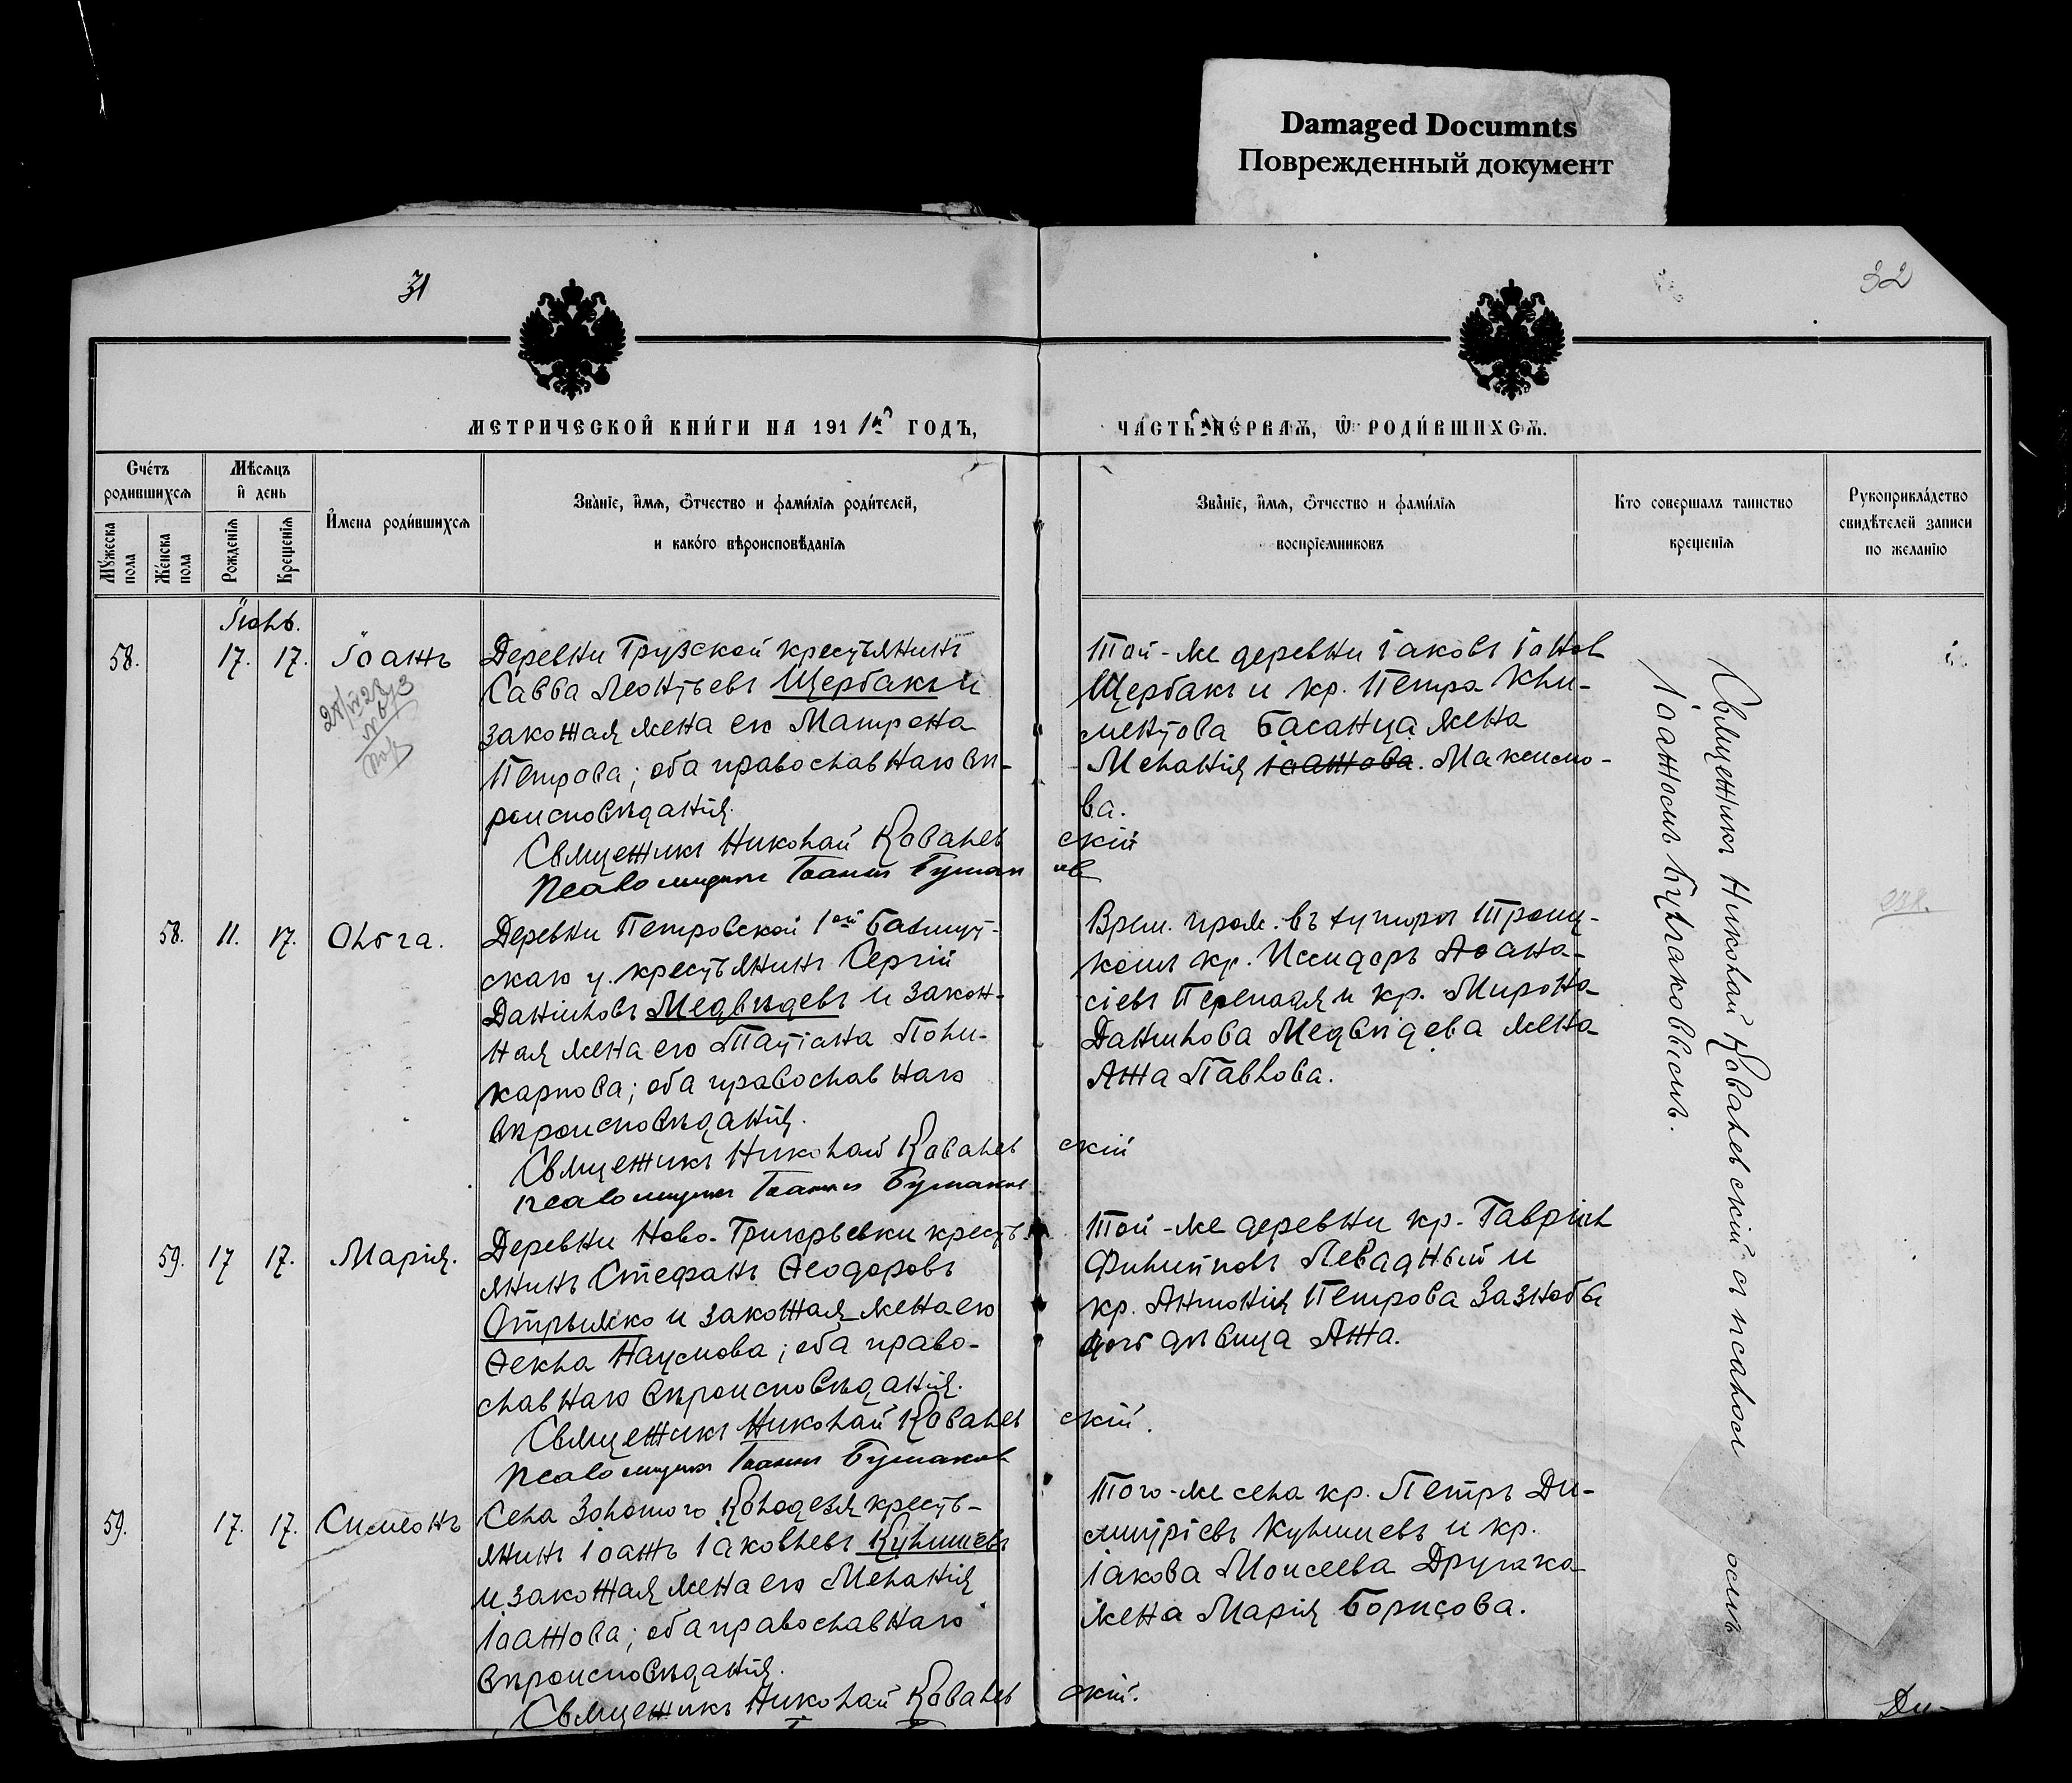 Damaged Documnts
Поврежденный документ
31
32
МЕТРИЧЕСКОЙ КНИ́ГИ НА 1911й ГОДЪ,
ЧА́СТЬ ПЕ́РВАѦ, Ѿ РОДИ́ВШИХСѦ.
Сче́тъ родившихсѧ
Мѣсѧцъ и҆ день
И҆́мена роди́вшихсѧ
Зва́нїе, и҆́мѧ, ѻ҆́тчество и фами́лїѧ роди́телей,
и како́го вѣроисповѣ́данїѧ
Зва́нїе, и҆́мѧ, ѻ҆́тчество и фами́лїѧ
воспрїемниковъ
Кто совершалъ таинство
крещенїѧ
Рукоприкла́дство
свидѣтелей записи
по желанїю
Мꙋ́жеска пола
Же́нска пола
Рожденїѧ
Крещенїѧ
Іюнь.
58.
17.
17.
Іоаннъ
Деревни Грузской крестьянинъ
Савва Леонтьевъ Щербакъ и
законная жена его Матрона
Петрова; оба православнаго вѣ-
роисповѣданія.
Священникъ Николай Ковалевскій
Псаломщикъ Іоаннъ
Той-же деревни Іаковъ
Щербакъ и кр. Петра Кли-
ментова Басанца жена
Меланія Іоаннова. Максимо-
ва.
58.
11.
17.
Ольга.
Деревни Петровской 1ой Бахмут-
скаго у. крестьянинъ Сергій
Даниловъ Медвѣдевъ и закон-
ная жена его Татіана Поли-
карпова; оба православнаго
вѣроисповѣданія.
Священникъ Николай Ковалевскій
Псаломщикъ Іоаннъ
Врем. прож. въ хуторѣ Троиц-
комъ кр. Исидоръ Аѳана-
сіевъ и кр. Мирона
Данилова Медвѣдева жена
Анна Павлова.
59.
17
17.
Марія.
Деревни Ново-Григорьевки кресть-
янинъ Стефанъ Ѳеодоровъ
Стрижко и законная жена его
Ѳекла Наумова; оба право-
славнаго вѣроисповѣданія.
Священникъ Николай Ковалевскій.
Псаломщикъ Іоаннъ
Той-же деревни кр. Гавріилъ
Филипповъ Левадный и
кр. Антонія Петрова Зазнобы
дочь дѣвица Анна.
59.
17.
17.
Симеонъ
Села Золотого Колодезя кресть-
янинъ Іоаннъ Іаковлевъ Кулишевъ
и законная жена его Меланія
Іоаннова; оба православнаго
вѣроисповѣданія.
Священникъ Николай Ковалевскій.
Того-же села кр. Петръ Ди-
митріевъ Кулишевъ и кр.
Іакова Моисеева Другака
жена Марія Борисова.
Священникъ Николай Ковалевскій съ псалом
омъ
Іоанномъ
Ди-